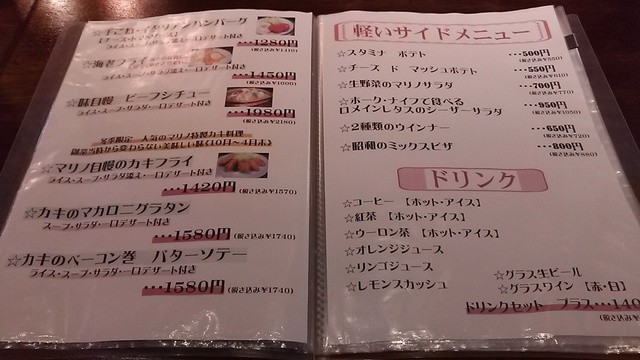 ☆手ごね・イタリアンハンバーグ
【チーズ・トマトソース】
ライス・スープ・サラダ・一口デザート付き
・・・1280円
☆海老フライ
ライス・スープ・サラダ・一口デザート付き
・・・1450円
☆味自慢 ビーフシチュー
ライス・スープ・サラダ・一口デザート付き
・・・1980円
(税さ込み¥2180)
冬季限定 人気のマリノ特製カキ料理
創業当時から変わらない美味しい味《10月～4月末》
☆マリノ自慢のカキフライ
ライス・スープ・サラダ・一口デザート付き
・・・1420円(税さ込み¥1570)
☆カキのマカロニグラタン
スープ・サラダ・一口デザート付き
・・・1580円(税さ込み¥1740)
☆カキのベーコン巻 バターソテー
ライス・スープ・サラダ・一口デザート付き
・・・1580円(税さ込み¥1740)
軽いサイドメニュー
☆スタミナ ポテト ・・・500円
(税さ込み¥550)
☆チーズ ド マッシュポテト ・・・550円
(税さ込み¥610)
☆生野菜のマリノサラダ ・・・700円
(税さ込み¥770)
☆ホーク・ナイフで食べる
ロメインレタスのシーザーサラダ ・・・950円
(税さ込み¥1050)
☆2種類のウインナー ・・・650円
(税さ込み¥720)
☆昭和のミックスピザ ・・・800円
(税さ込み¥880)
ドリンク
☆コーヒー 【ホット・アイス】
☆紅茶 【ホット・アイス】
☆ウーロン茶 【ホット・アイス】
☆オレンジジュース
☆リンゴジュース
☆レモンスカッシュ
☆グラス生ビール
☆グラスワイン【赤・白】
ドリンクセット プラス・・・140
(税さ込み